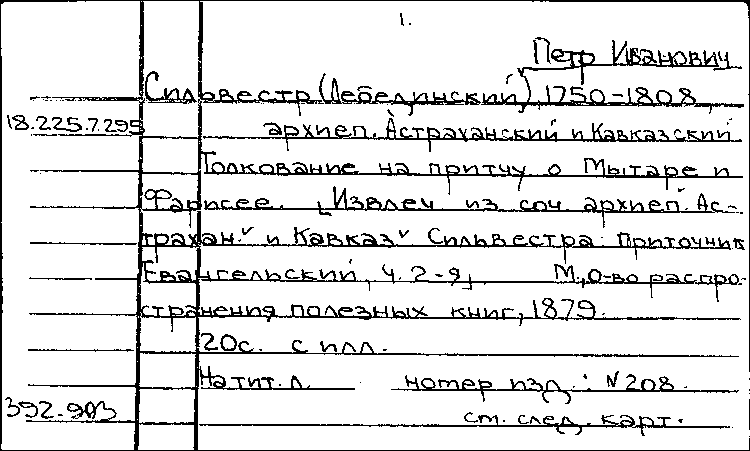 1.
Петр Иванович
Сильвестр (Лебединский), 1750-1808,
18.225.7.295 архиеп. Астраханский и Кавказский
Толкование на притчу о Мытаре и
Фарисее. [Извлеч из соч архиеп. Ас-
трахан. и Кавказ Сильвестра: Приточник
Евангельский, ч. 2-я] М., О-во распро-
странения полезных книг, 1879.
20с. с илл.
На тит. л. номер изд.: N 208.
392-903 см. след. карт.